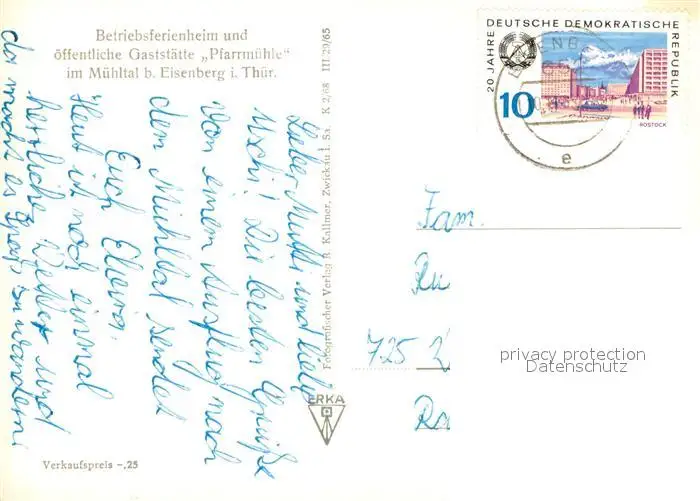 Betriebsferienheim und
öffentliche Gaststätte „Pfarrmühle"
im Mühltal b. Eisenberg i. Thür.
Lieber Mutti und liebe
Uschi! Die besten Grüße
von einem Ausflug nach
dem Mühltal sendet
Euch
Heut ist noch einmal
herrliches Wetter und
da macht es Spaß zu wandern.
Verkaufspreis -,25
Fotografischer Verlag R. Kallmer, Zwickau i. Sa. K 2/68 III/29/65
ERKA
20 JAHRE DEUTSCHE DEMOKRATISCHE REPUBLIK
10
ROSTOCK
ENB
e
Fam.
Ru
725
Ra
privacy protection
Datenschutz